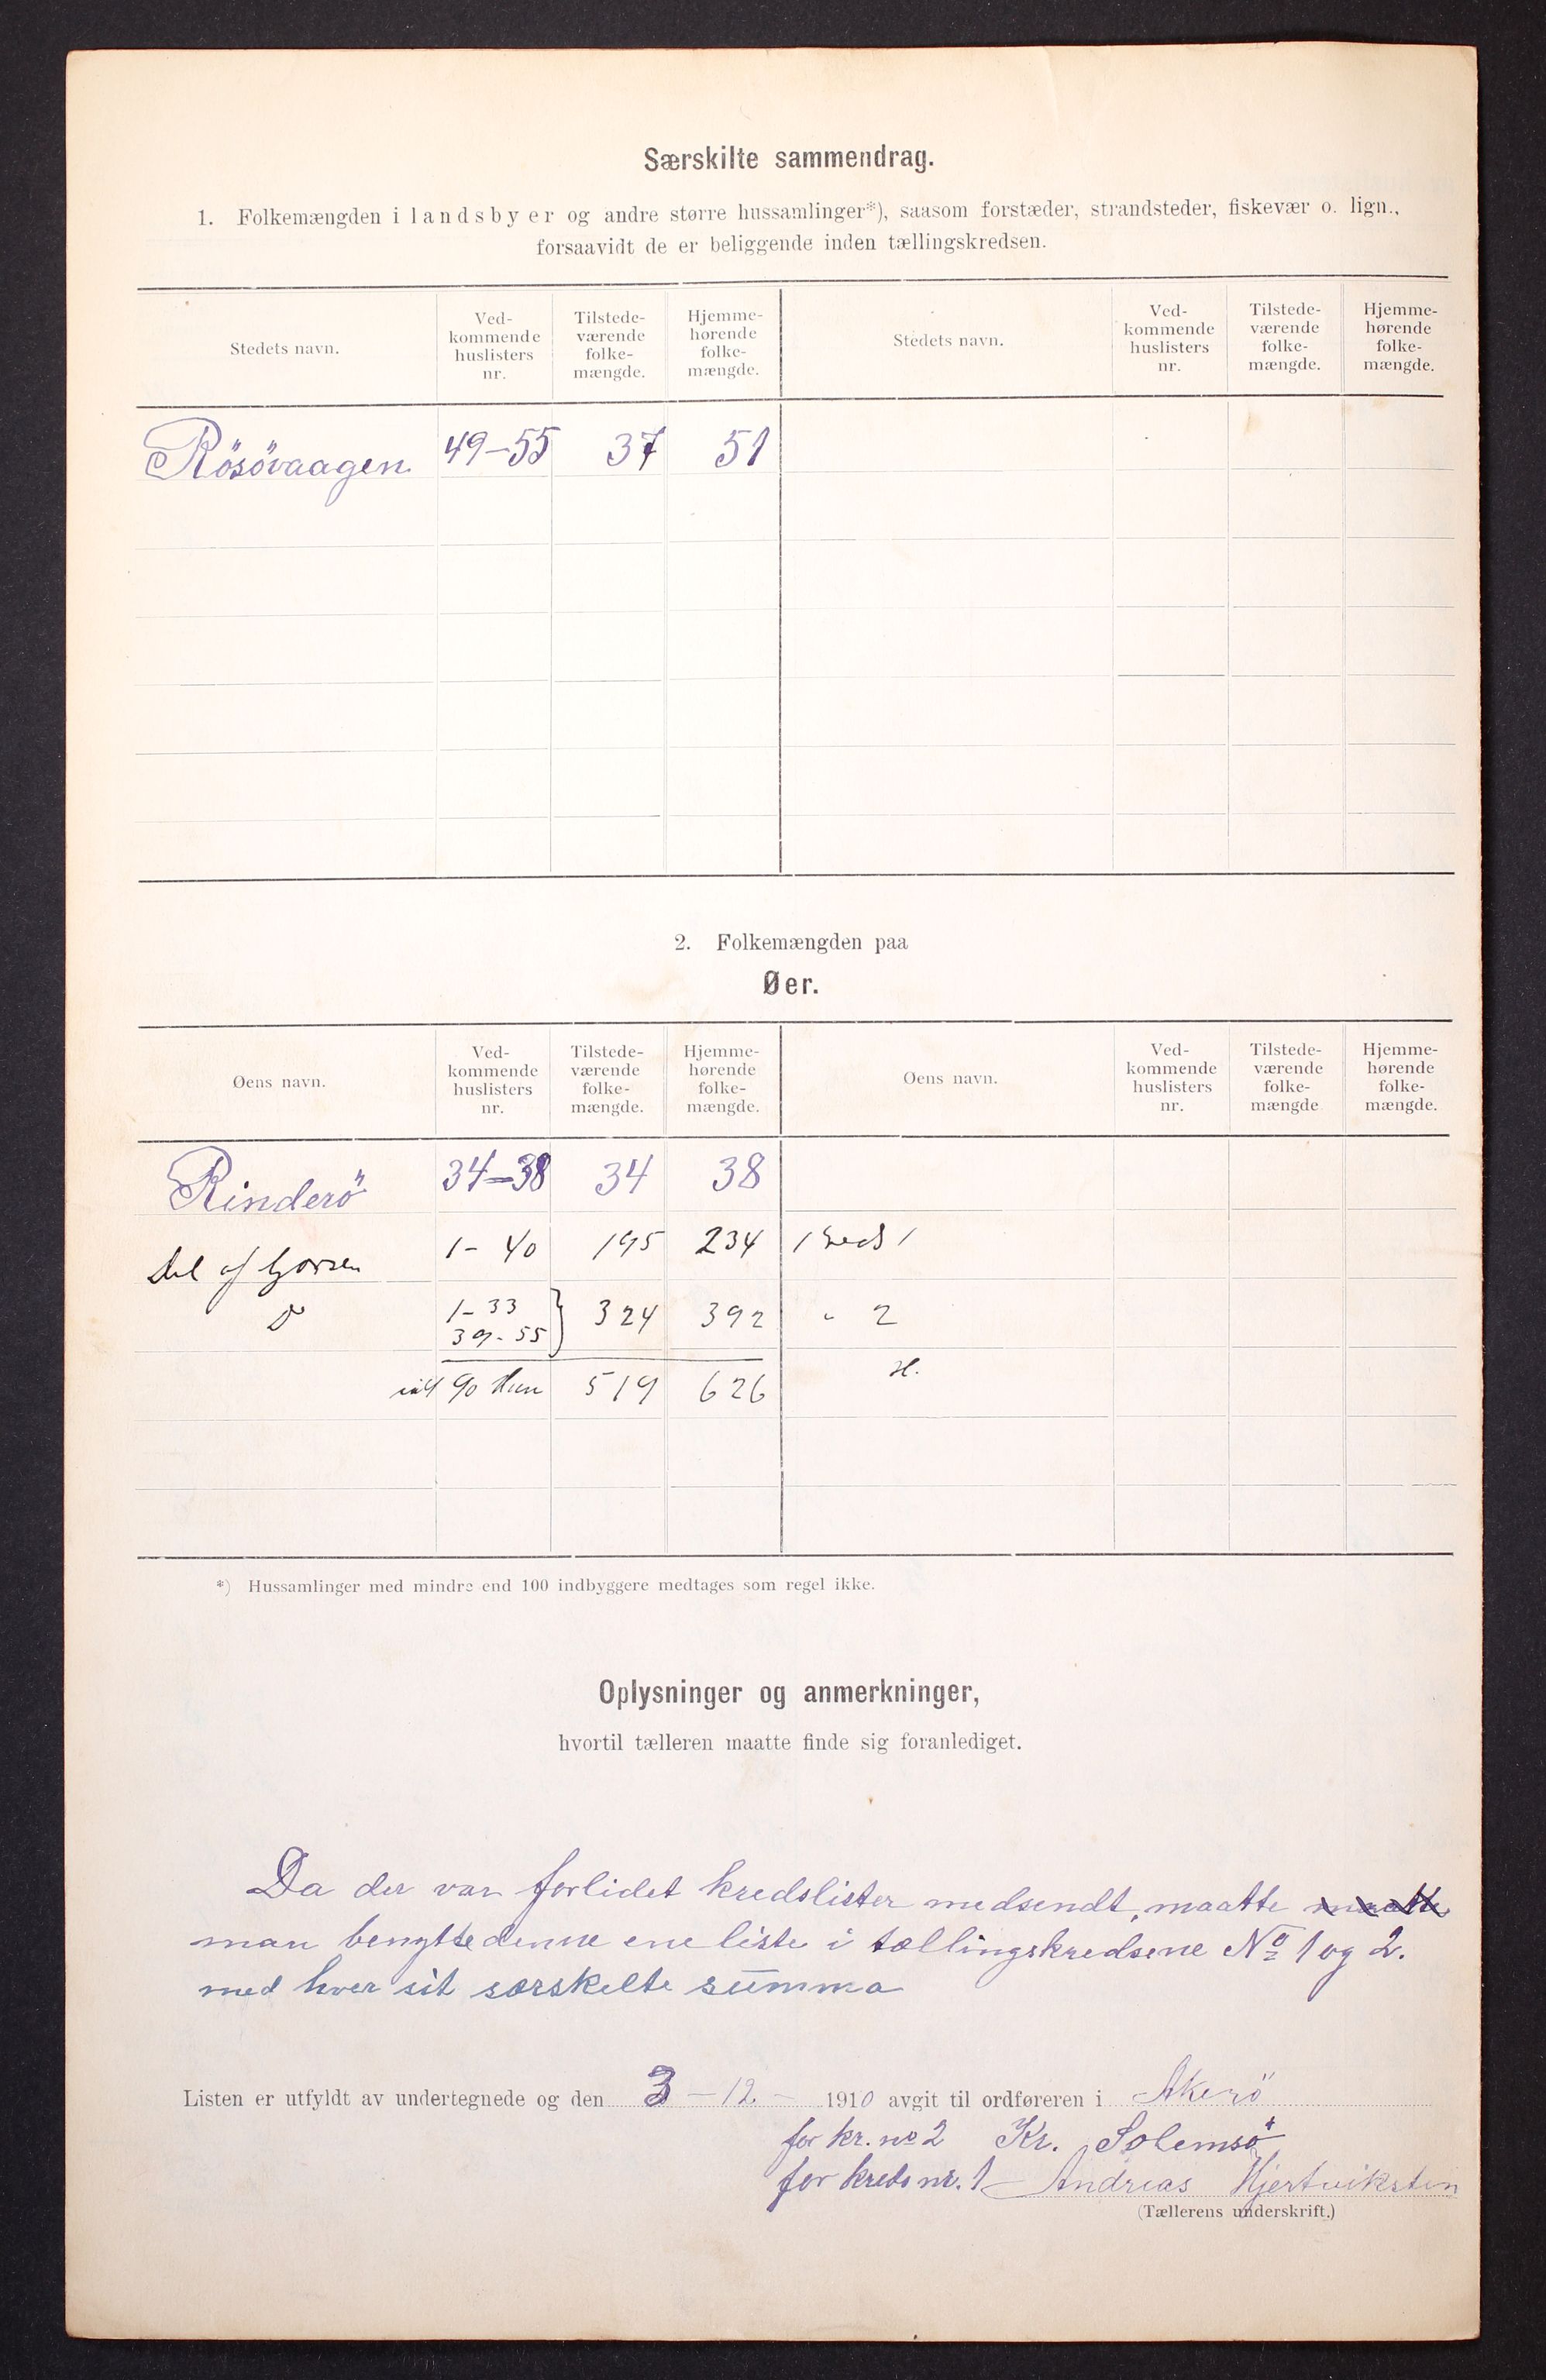 Særskilte sammendrag.
1. Folkemængden i landsbyer og andre større hussamlinger*), saasom forstæder, strandsteder, fiskevær o. lign.,
forsaavidt de er beliggende inden tællingskredsen.
Stedets navn. Ved-kommende huslisters nr. Tilstede-værende folke-mængde. Hjemme-hørende folke-mængde. Stedets navn. Ved-kommende huslisters nr. Tilstede-værende folke-mængde. Hjemme-hørende folke-mængde.
Rösövaagen 49-55 37 51
2. Folkemængden paa
Øer.
Øens navn. Ved-kommende huslisters nr. Tilstede-værende folke-mængde. Hjemme-hørende folke-mængde. Øens navn. Ved-kommende huslisters nr. Tilstede-værende folke-mængde Hjemme-hørende folke-mængde.
Rinderö 34-38 34 38
Del af 1-40 195 234
1-33
39-55 } 324 392 " 2
90 519 626 H.
*) Hussamlinger med mindre end 100 indbyggere medtages som regel ikke.
Oplysninger og anmerkninger,
hvortil tælleren maatte finde sig foranlediget.
Da der var forlidet kredslister medsendt, maatte maatte
man benytte denne ene liste i tællingskredsene No 1 og 2.
med hver sit særskelte summa
Listen er utfyldt av undertegnede og den 3-12- 1910 avgit til ordføreren i Akerö
for kr. no 2 Kr. Solemsö
for kreds nr. 1 Andreas Hjertviksten
(Tællerens underskrift.)